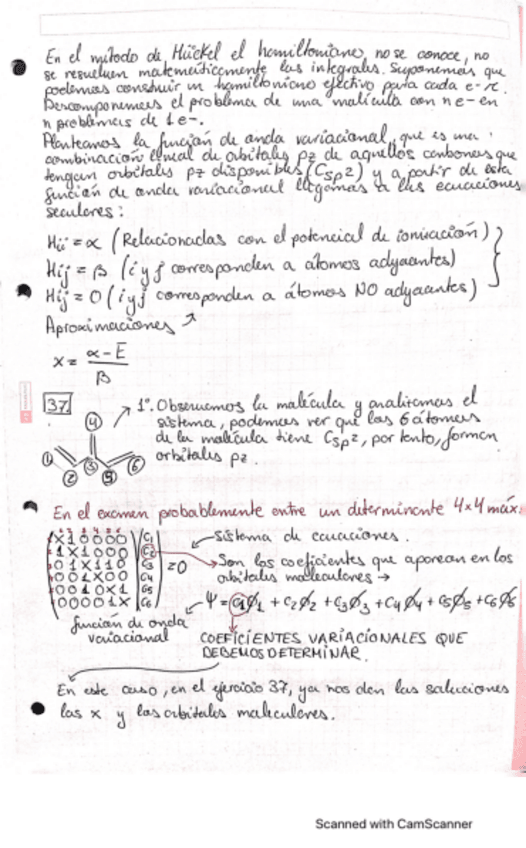 En el método de Hückel el hamiltoniano, no se conoce, no
se resuelven matemáticamente las integrales. Suponemos que
podemos construir un hamiltoniano efectivo para cada e-π.
Descomponemos el problema de una molícula con n e- en
n problemas de 1 e-.
Planteamos la función de onda variacional, que es una
combinación lineal de orbitales pz de aquellos carbonos que
tengan orbitales pz disponibles (Csp2) y a partir de esta
función de onda variacional llegamos a las ecuaciones
seculares:
Hii = α (Relacionadas con el potencial de ionización)
Hij = β (i y j corresponden a átomos adyacentes)
Hij = 0 (i y j corresponden a átomos NO adyacentes)
Aproximaciones
x = α-E / β
37
1º. Observemos la molécula y analizamos el
sistema, podemos ver que los 6 átomos
de la molécula tiene Csp2, por tanto, forman
orbitales pz.
1 2 3 4 5 6
En el examen probablemente entre un determinante 4x4 máx.
1 2 3 4 5 6
X 1 0 0 0 0 C1
1 X 1 0 0 0 C2
0 1 X 1 1 0 C3
0 0 1 X 0 0 C4
0 0 1 0 X 1 C5
0 0 0 0 1 X C6
= 0
sistema de ecuaciones.
Son los coeficientes que aparean en los
orbitales moleculares →
Ψ = C1Ø1 + C2Ø2 + C3Ø3 + C4Ø4 + C5Ø5 + C6Ø6
función de onda
variacional
COEFICIENTES VARIACIONALES QUE
DEBEMOS DETERMINAR.
En este caso, en el ejercicio 37, ya nos dan las soluciones
las x y los orbitales moleculares.
Scanned with CamScanner